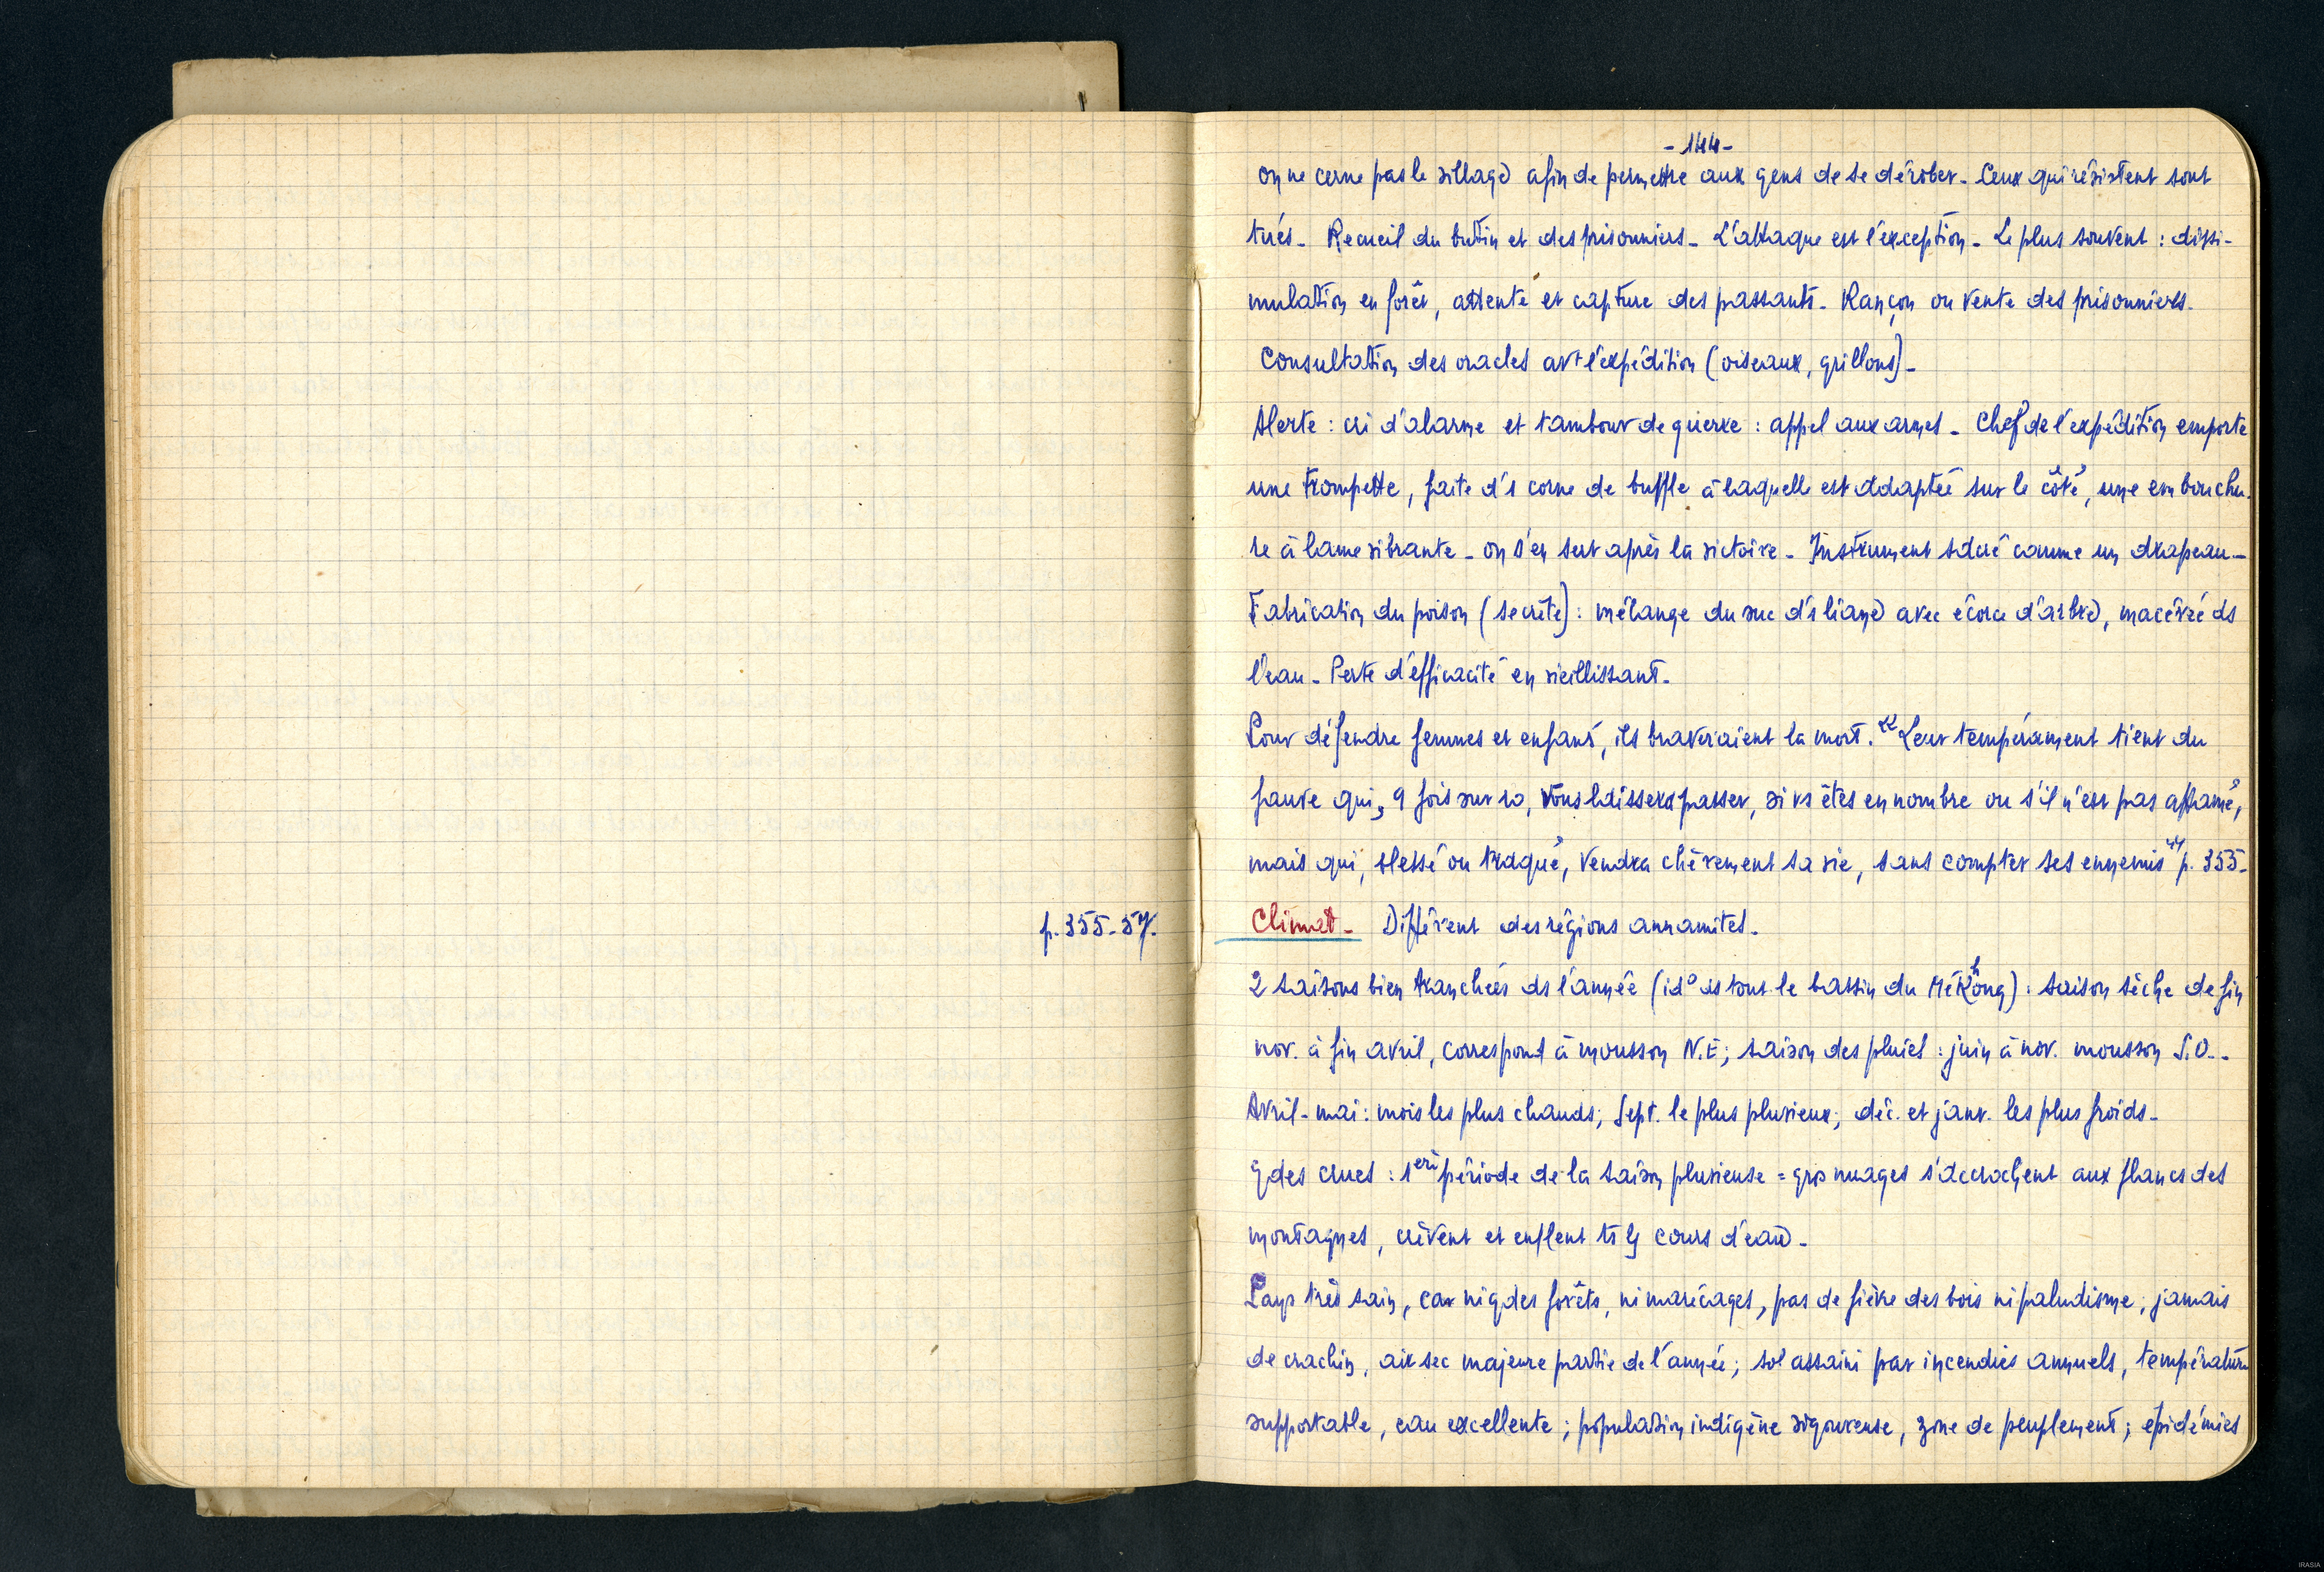 - 144 -
on ne cerne pas le village afin de permettre aux gens de se dérober - Ceux qui résistent sont
tués - Recueil du butin et des prisonniers - L'attaque est l'exception - Le plus souvent : dissi-
mulation en forêt, attente et capture des passants - Rançon ou vente des prisonniers.
Consultation des oracles avt l'expédition (oiseaux, grillons) -
Alerte : cri d'alarme et tambour de guerre : appel aux armes - Chef de l'expédition emporte
une trompette, faite d'1 corne de buffle à laquelle est adaptée sur le côté, une embouchu-
re à lame vibrante - on s'en sert après la victoire - Instrument sacré comme un drapeau -
Fabrication du poison (secrète) : mélange du suc d'1 liane avec écorce d'arbre, macéré ds
l'eau - Perte d'efficacité en vieillissant -
Pour défendre femmes et enfants, ils braveraient la mort. "Leur tempérament tient du
fauve qui, 9 fois sur 10, vous laissera passer, si vs êtes en nombre ou s'il n'est pas affamé,
mais qui, blessé ou traqué, vendra chèrement sa vie, sans compter ses ennemis" p. 355 -
p. 355-57.
Climat - Différent des régions annamites -
2 saisons bien tranchées ds l'année (ido ds tout le bassin du Mékhong) : saison sèche de fin
nov. à fin avril, correspond à mousson N.E ; saison des pluies : juin à nov. mousson S.O. -
Avril - mai : mois les plus chauds ; Sept. le plus pluvieux ; déc. et janv. les plus froids -
gdes crues : 1ère période de la saison pluvieuse = gros nuages s'accrochent aux flancs des
montagnes, crèvent et enflent ts ls cours d'eau -
Pays très sain, car ni gdes forêts, ni marécages, pas de fièvre des bois ni paludisme ; jamais
de crachin, air sec majeure partie de l'année ; sol assaini par incendies annuels, température
supportable, eau excellente ; population indigène vigoureuse, zone de peuplement ; épidémies
IRASIA